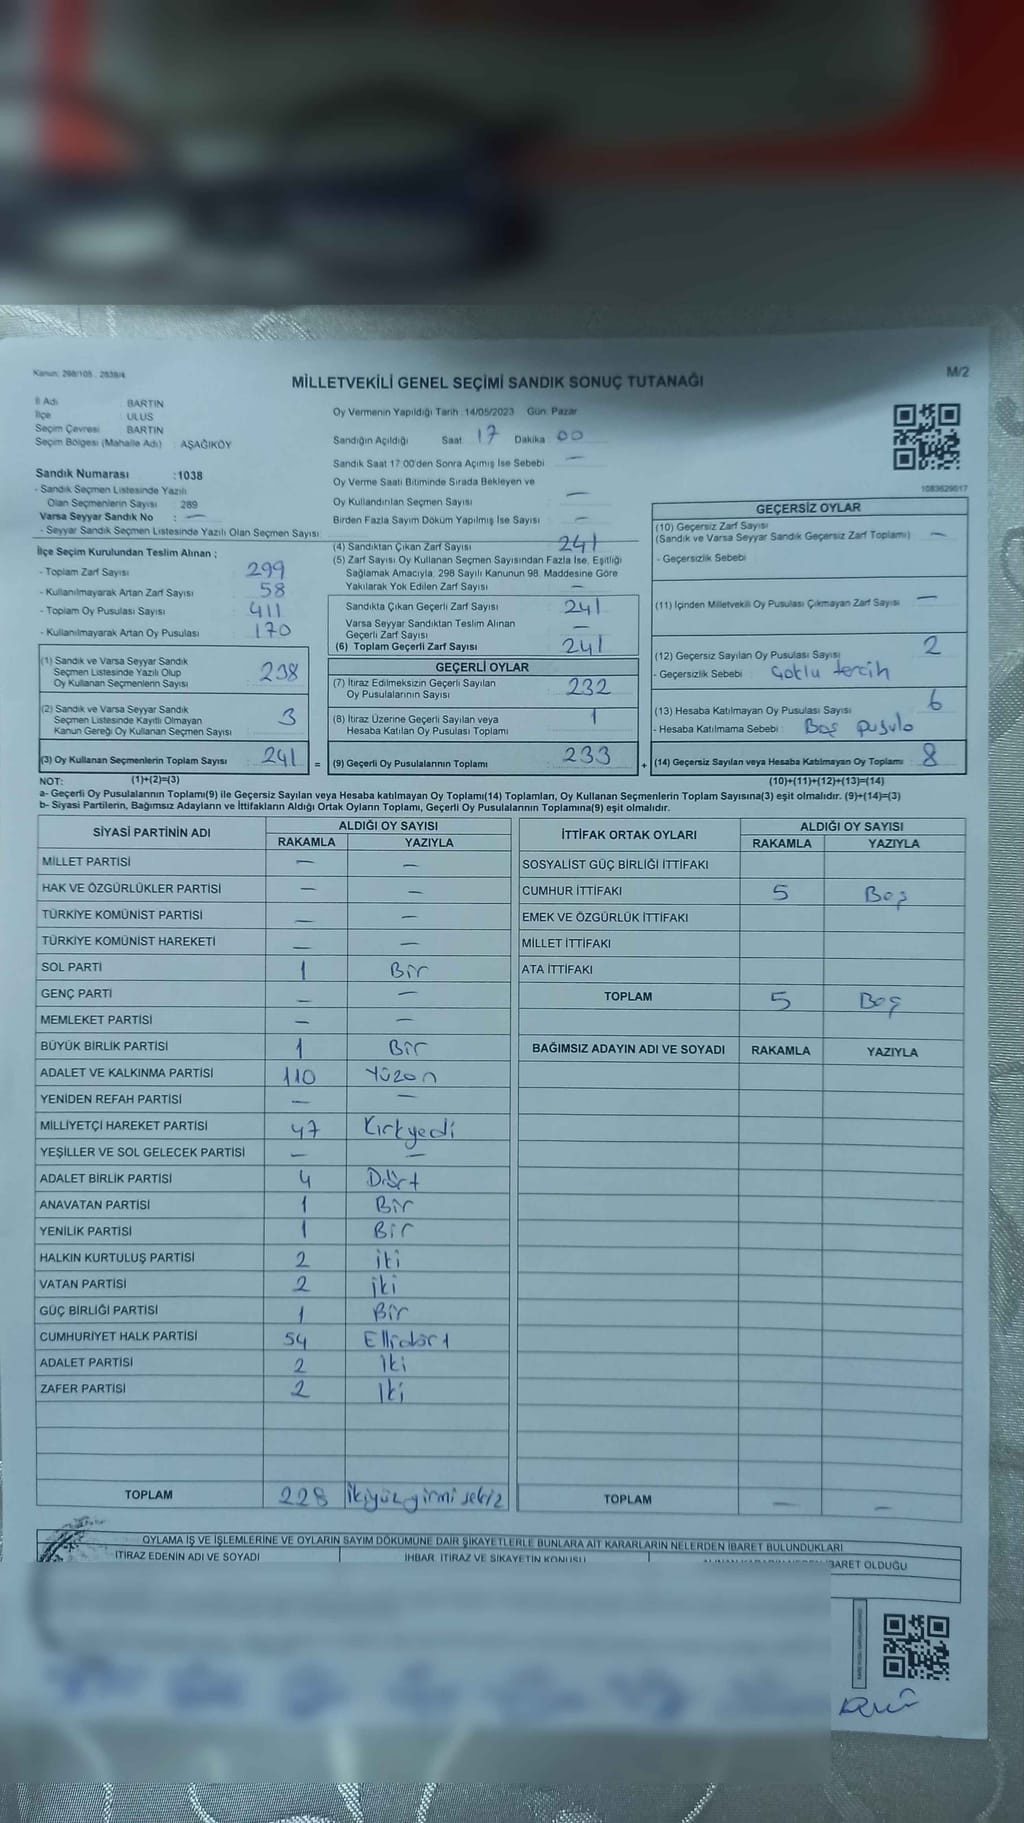 Kanun: 298/105 , 2839/4
M/2
MİLLETVEKİLİ GENEL SEÇİMİ SANDIK SONUÇ TUTANAĞI
İl Adı BARTIN
İlçe : ULUS
Seçim Çevresi : BARTIN
Seçim Bölgesi (Mahalle Adı) : AŞAĞIKÖY
Sandık Numarası :1038
- Sandık Seçmen Listesinde Yazılı
Olan Seçmenlerin Sayısı 289
Varsa Seyyar Sandık No : —
- Seyyar Sandık Seçmen Listesinde Yazılı Olan Seçmen Sayısı
Oy Vermenin Yapıldığı Tarih :14/05/2023 Gün: Pazar
Sandığın Açıldığı Saat 17 Dakika 00
Sandık Saat 17:00'den Sonra Açılmış İse Sebebi —
Oy Verme Saati Bitiminde Sırada Bekleyen ve
Oy Kullandırılan Seçmen Sayısı —
Birden Fazla Sayım Döküm Yapılmış İse Sayısı —
1083629017
İlçe Seçim Kurulundan Teslim Alınan ;
- Toplam Zarf Sayısı 299
- Kullanılmayarak Artan Zarf Sayısı 58
- Toplam Oy Pusulası Sayısı 411
- Kullanılmayarak Artan Oy Pusulası 170
(1) Sandık ve Varsa Seyyar Sandık
Seçmen Listesinde Yazılı Olup
Oy Kullanan Seçmenlerin Sayısı 238
(2) Sandık ve Varsa Seyyar Sandık
Seçmen Listesinde Kayıtlı Olmayan
Kanun Gereği Oy Kullanan Seçmen Sayısı 3
(3) Oy Kullanan Seçmenlerin Toplam Sayısı 241 =
(4) Sandıktan Çıkan Zarf Sayısı 241
(5) Zarf Sayısı Oy Kullanan Seçmen Sayısından Fazla İse, Eşitliği
Sağlamak Amacıyla, 298 Sayılı Kanunun 98. Maddesine Göre
Yakılarak Yok Edilen Zarf Sayısı —
Sandıkta Çıkan Geçerli Zarf Sayısı 241
Varsa Seyyar Sandıktan Teslim Alınan
Geçerli Zarf Sayısı —
(6) Toplam Geçerli Zarf Sayısı 241
GEÇERLİ OYLAR
(7) İtiraz Edilmeksizin Geçerli Sayılan
Oy Pusulalarının Sayısı 232
(8) İtiraz Üzerine Geçerli Sayılan veya
Hesaba Katılan Oy Pusulası Toplamı 1
(9) Geçerli Oy Pusulalarının Toplamı 233 +
GEÇERSİZ OYLAR
(10) Geçersiz Zarf Sayısı
(Sandık ve Varsa Seyyar Sandık Geçersiz Zarf Toplamı) —
- Geçersizlik Sebebi
(11) İçinden Milletvekili Oy Pusulası Çıkmayan Zarf Sayısı —
(12) Geçersiz Sayılan Oy Pusulası Sayısı 2
- Geçersizlik Sebebi : Çoklu tercih
(13) Hesaba Katılmayan Oy Pusulası Sayısı 6
- Hesaba Katılmama Sebebi : Boş pusula
(14) Geçersiz Sayılan veya Hesaba Katılmayan Oy Toplamı 8
NOT: (1)+(2)=(3) (10)+(11)+(12)+(13)=(14)
a- Geçerli Oy Pusulalarının Toplamı(9) ile Geçersiz Sayılan veya Hesaba Katılmayan Oy Toplamı(14) Toplamları, Oy Kullanan Seçmenlerin Toplam Sayısına(3) eşit olmalıdır. (9)+(14)=(3)
b- Siyasi Partilerin, Bağımsız Adayların ve İttifakların Aldığı Ortak Oyların Toplamı, Geçerli Oy Pusulalarının Toplamına(9) eşit olmalıdır.
SİYASİ PARTİNİN ADI ALDIĞI OY SAYISI
RAKAMLA YAZIYLA
MİLLET PARTİSİ — —
HAK VE ÖZGÜRLÜKLER PARTİSİ — —
TÜRKİYE KOMÜNİST PARTİSİ — —
TÜRKİYE KOMÜNİST HAREKETİ — —
SOL PARTİ 1 Bir
GENÇ PARTİ — —
MEMLEKET PARTİSİ — —
BÜYÜK BİRLİK PARTİSİ 1 Bir
ADALET VE KALKINMA PARTİSİ 110 Yüzon
YENİDEN REFAH PARTİSİ — —
MİLLİYETÇİ HAREKET PARTİSİ 47 Kırkyedi
YEŞİLLER VE SOL GELECEK PARTİSİ — —
ADALET BİRLİK PARTİSİ 4 Dört
ANAVATAN PARTİSİ 1 Bir
YENİLİK PARTİSİ 1 Bir
HALKIN KURTULUŞ PARTİSİ 2 iki
VATAN PARTİSİ 2 iki
GÜÇ BİRLİĞİ PARTİSİ 1 Bir
CUMHURİYET HALK PARTİSİ 54 Ellidört
ADALET PARTİSİ 2 İki
ZAFER PARTİSİ 2 İki
TOPLAM 228 İkiyüzyirmi sekiz
İTTİFAK ORTAK OYLARI ALDIĞI OY SAYISI
RAKAMLA YAZIYLA
SOSYALİST GÜÇ BİRLİĞİ İTTİFAKI
CUMHUR İTTİFAKI 5 Beş
EMEK VE ÖZGÜRLÜK İTTİFAKI
MİLLET İTTİFAKI
ATA İTTİFAKI
TOPLAM 5 Beş
BAĞIMSIZ ADAYIN ADI VE SOYADI RAKAMLA YAZIYLA
TOPLAM — —
OYLAMA İŞ VE İŞLEMLERİNE VE OYLARIN SAYIM DÖKÜMÜNE DAİR ŞİKAYETLERLE BUNLARA AİT KARARLARIN NELERDEN İBARET BULUNDUKLARI
İTİRAZ EDENİN ADI VE SOYADI İHBAR, İTİRAZ VE ŞİKAYETİN KONUSU İBARET OLDUĞU